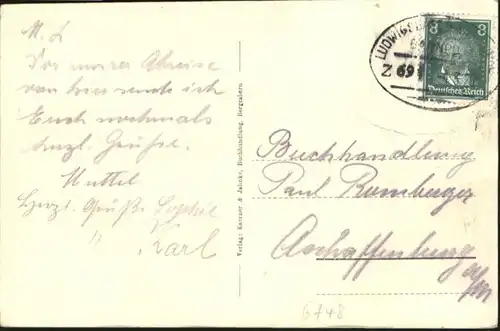 M. L
Vor unserer Abreise
von hier sende ich
Euch nochmals
herzl. Grüße.
Herzl. Grüße Sophie
" Karl
Verlag: Kassner & Jahnke, Buchhandlung, Bergzabern
LUDWIGS
Z 69
8 8
Deutsches Reich
Buchhandlung
Paul Romberger
Aschaffenburg
a/M
6748